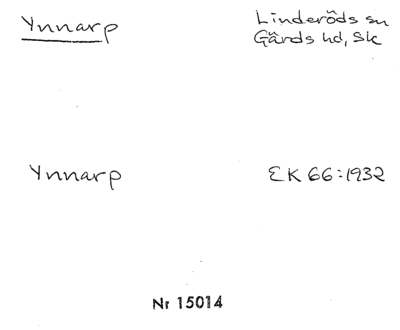 Ynnarp
Linderöds sn
Gärds hd, Sk
Ynnarp
EK 66:1932
Nr 15014